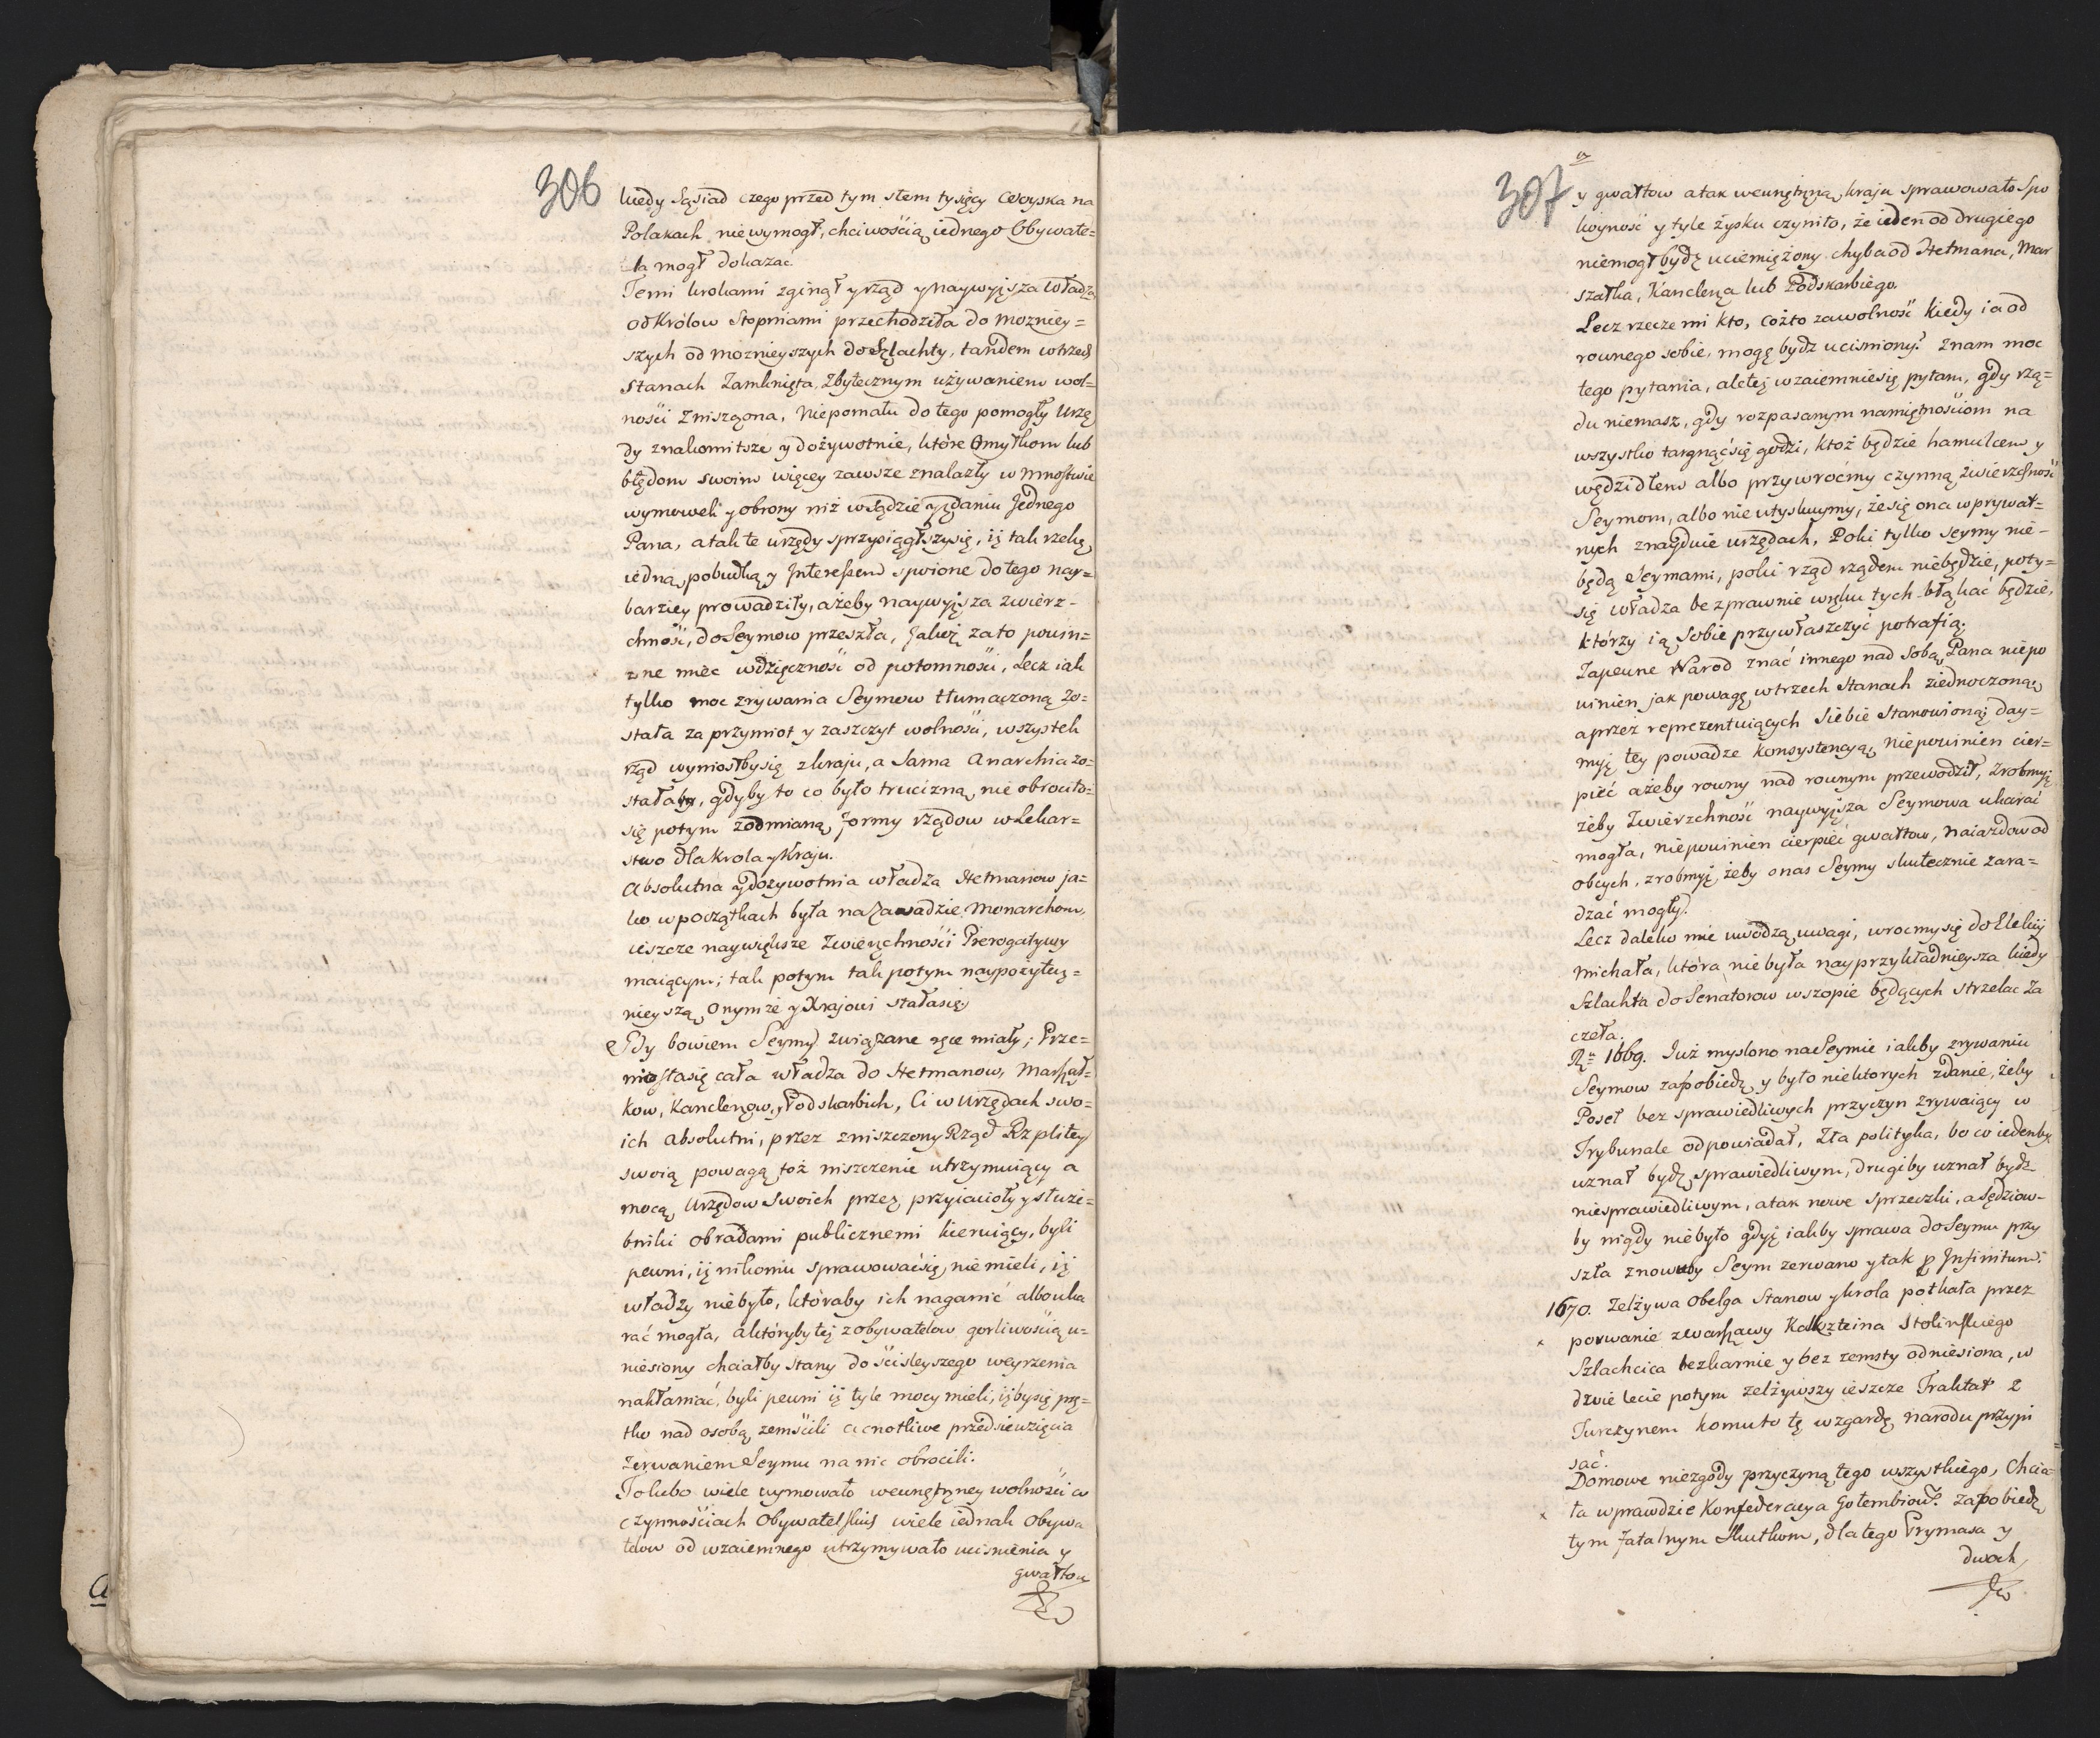 306
kiedy Sąsiad czego przed tym stem tysięcy Woyska na
Polakach nie wymogł, chciwością iednego Obywate=
la mogł dokazać.
Temi krokami zginął y rząd y naywyższa Władza
od Królow Stopniami przechodziła do mozniey=
szych od moznieyszych do Szlachty, tandem w trzech
Stanach Zamknięta, Zbytecznym używaniem wol=
ności Zniszczona, Niepomału do tego pomogły Urzę
dy znakomitsze y dożywotnie, które Omyłkom lub
błędom swoim więcey zawsze znalazły w Mnostwie
wymowek y obrony niż w Sądzie y żądaniu Jednego
Pana, a tak te urzędy sprzysiągłszy się, iż tak rzekę
iedną pobudką y Interessem spoione do tego nay=
barziey prowadziły, ażeby naywyższa zwierz-
chność, do Seymow przeszła, Jakąż za to powin=
ne mieć wdzięczność od potomności, Lecz iak
tylko moc zrywania Seymow tłumaczoną zo=
stała za przymiot y zaszczyt wolności, wszystek
rząd wyniosłby się z kraju, a Sama Anarchia zo=
stałaby, gdyby to co było trucizną, nie obrociło=
się potym z odmianą formy rządow w Lekar=
stwo dla Krola y Kraju.
Absolutna y dożywotnia władza Hetmanow ja=
ko w początkach była na Zawadzie Monarchom,
ieszcze naywiększe Zwierzchności Prerogatywy
maiącym; tak potym tak potym naypożytecz=
nieyszą Onymże y Krajowi stała się
Gdy bowiem Seymy związane ręce miały; Prze=
niosła się cała władza do Hetmanow, Marszał=
kow, Kanclerzow, y Podskarbich, Ci w Urzędach swo=
ich absolutni, przez zniszczony Rząd Rzplitey
swoią powagą toż niszczenie utrzymuiący a
mocą Urzędow Swoich przez przyiacioły y służe=
bniki obradami publicznemi kieruiący, byli
pewni, iż nikomu sprawować się nie mieli, iż
władzy nie było, któraby ich naganić albo uka
rać mogła, a któryby też z obywatelow gorliwością u=
niesiony chciałby Stany do ściśleyszego weyrzenia
nakłaniać, byli pewni iż tyle mocy mieli, iżby się prę=
tko nad osobą zemścili a cnotliwe przedsiewzięcia
Zerwaniem Seymu na nic obrocili.
To lubo wiele uymowało wewnętrzney wolności w
czynnościach Obywatelskich wiele iednak Obywa
telow od wzaiemnego utrzymywało uciśnienia y
gwałtow
307
y gwałtow a tak wewnętrzną kraju sprawowało Spo
koyność y tyle zysku czyniło, że ieden od drugiego
niemogł bydź uciemiężony chyba od Hetmana, Mar
szałka, Kanclerza lub Podskarbiego.
Lecz rzecze mi kto, cóż to za wolność kiedy ia od
rownego sobie, mogę bydz uciśniony? Znam moc
tego pytania, ale też wzaiemnie się pytam, gdy rzą=
du niemasz, gdy rozpasanym namiętnościom na
wszystko targnąć się godzi, któż będzie hamulcem y
wędzidłem albo przywroćmy czynną Zwierzchność
Seymom, albo nie utyskuymy, że się ona w prywat=
nych znayduie urzędach, Poki tylko Seymy nie-
będą Seymami, poki rząd rządem niebędzie, poty=
się władza bezprawnie w ręku tych błąkać będzie,
którzy ią Sobie przywłaszczyć potrafią.
Zapewne Narod znać innego nad Sobą Pana niepo
winien jak powagę w trzech Stanach ziednoczoną
a przez reprezentuiących Siebie Stanowioną; day=
myż tey powadze konsystencyą, Niepowinien cier=
pieć ażeby rowny nad rownym przewodził, Zrobmyż
żeby Zwierzchność naywyższa Seymowa ukarać
mogła, niepowinien cierpieć gwałtow, naiazdow od
obcych, zrobmyż, żeby o nas Seymy skutecznie zara=
dzać mogły.
Lecz daleko mie uwodzą uwagi, wrocmy się do Elekcij
Michała, która nie była nayprzykładnieysza kiedy
Szlachta do Senatorow w szopie będących strzelac Za
czeła.
Rº 1669. Już myslono na Seymie iakby zrywaniu
Seymow zapobiedz y było niektorych zdanie, żeby
Poseł bez sprawiedliwych przyczyn Zrywaiący w
Trybunale odpowiadał, Zła polityka, bo co iedenby
uznał bydź sprawiedliwym, drugiby uznał bydz
niesprawiedliwym, a tak nowe sprzeczki, a Sędziow-
by nigdy niebyło gdyż iakby sprawa do Seymu przy
szła znowuby Seym zerwano y tak p Infinitum.
1670. Zelżywa Obelga Stanow y krola potkała przez
porwanie z Warszawy Kalkszteina Stolinskiego
Szlachcica bezkarnie y bez zemsty odniesiona, w
dwie lecie potym zelżywszy ieszcze Traktat z
Turczynem komuto tę wzgardę narodu przypi
sać.
Domowe niezgody przyczyną tego wszystkiego, Chcia=
ła wprawdzie Konfederacya Gołembiow: zapobiedz
tym fatalnym Skutkom, dla tego Prymasa y
dwoch